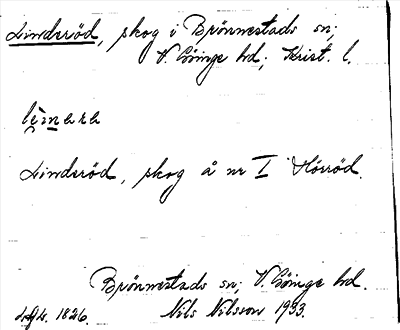 Linderöd, skog i Brönnestads sn;
V. Göinge hd; Krist. l.
Linderöd, skog å nr I Hörröd.
Brönnestads sn; V. Göinge hd.
Nils Nilsson 1933.
1826.